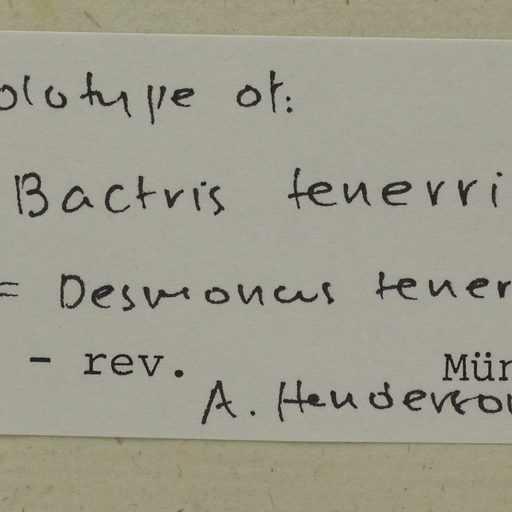 olotype of:
Bactris tenerri
= Desmoncus tener
- rev. Mün
A. Henderson